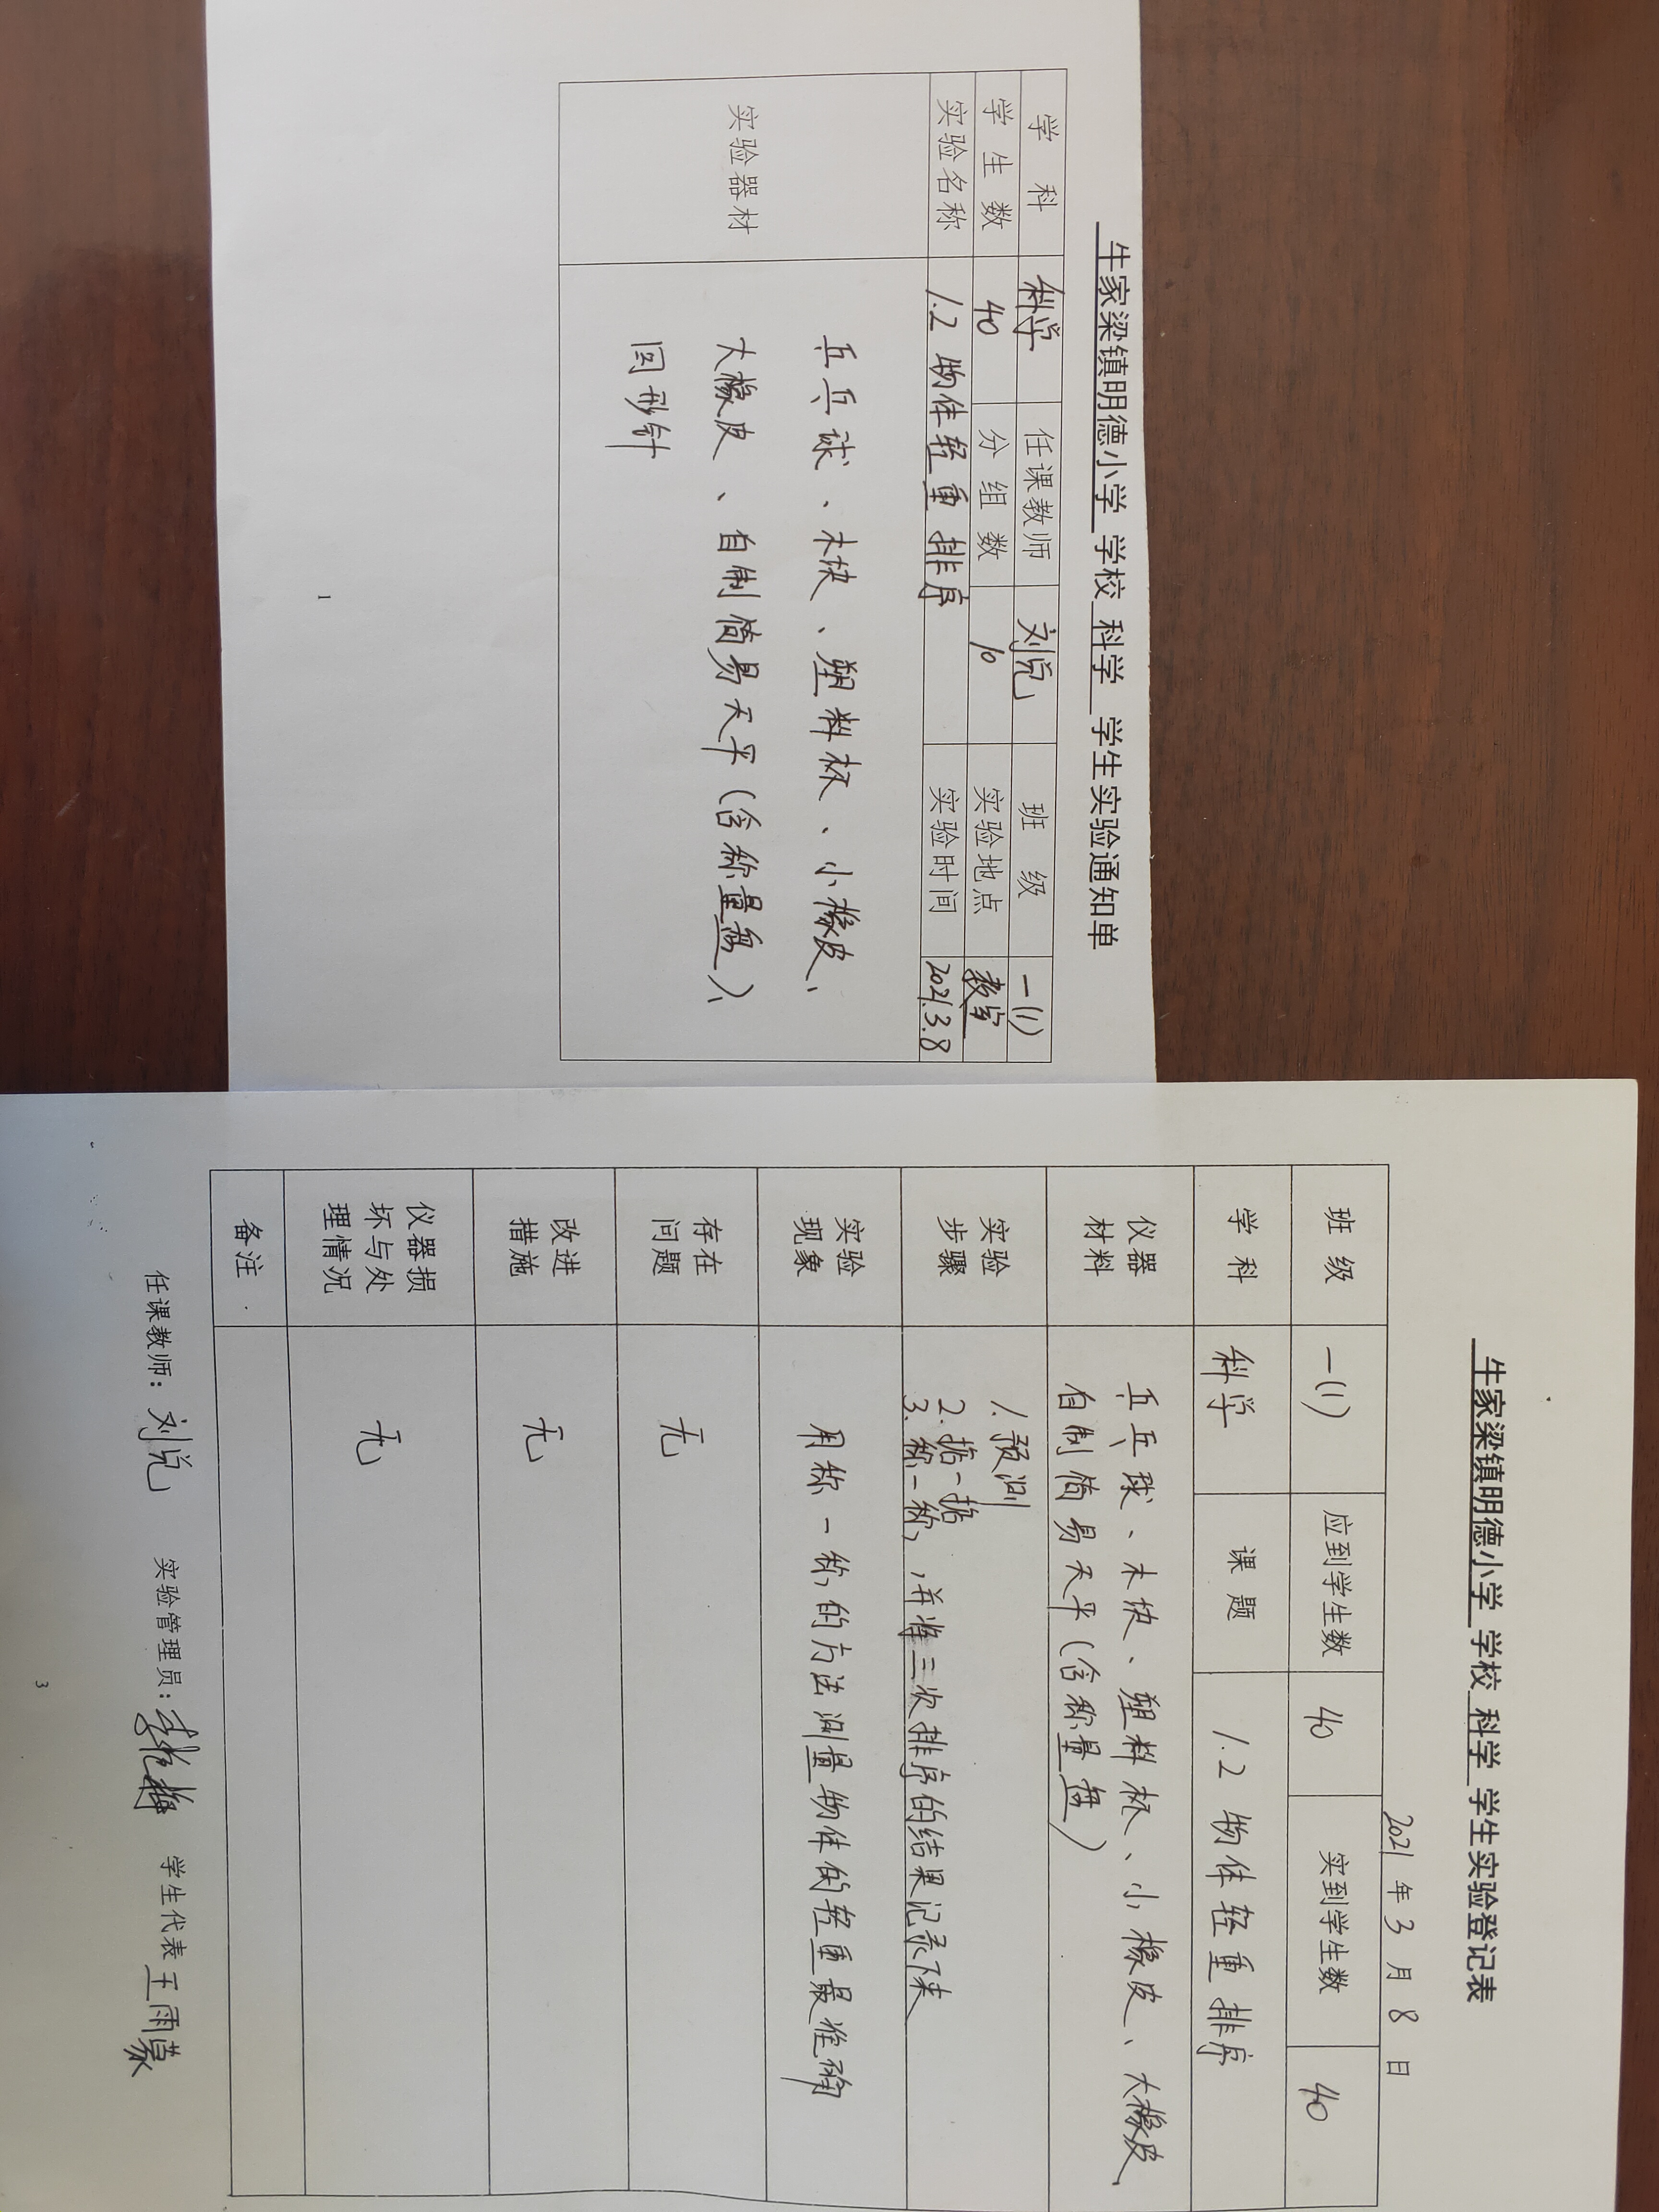 牛家梁镇明德小学 学校 科学 学生实验通知单
学 科 科学 任课教师 刘悦 班 级 一(1)
学 生 数 40 分 组 数 10 实验地点 教室
实验名称 1.2 物体轻重排序 实验时间 2021.3.8
实验器材
乒乓球、木块、塑料杯、小橡皮、
大橡皮、自制简易天平(含称量盘)、
回形针
1
牛家梁镇明德小学 学校 科学 学生实验登记表
2021 年 3 月 8 日
班 级 一(1) 应到学生数 40 实到学生数 40
学 科 科学 课 题 1.2 物体轻重排序
仪器
材料
乒乓球、木块、塑料杯、小橡皮、大橡皮
自制简易天平(含称量盘)
实验
步骤
1.预测
2.掂一掂
3.称一称,并将三次排序的结果记录下来
实验
现象
用称一称的方法测量物体的轻重最准确
存在
问题
无
改进
措施
无
仪器损
坏与处
理情况
无
备注
任课教师: 刘悦 实验管理员: 学生代表 王雨蒙
3